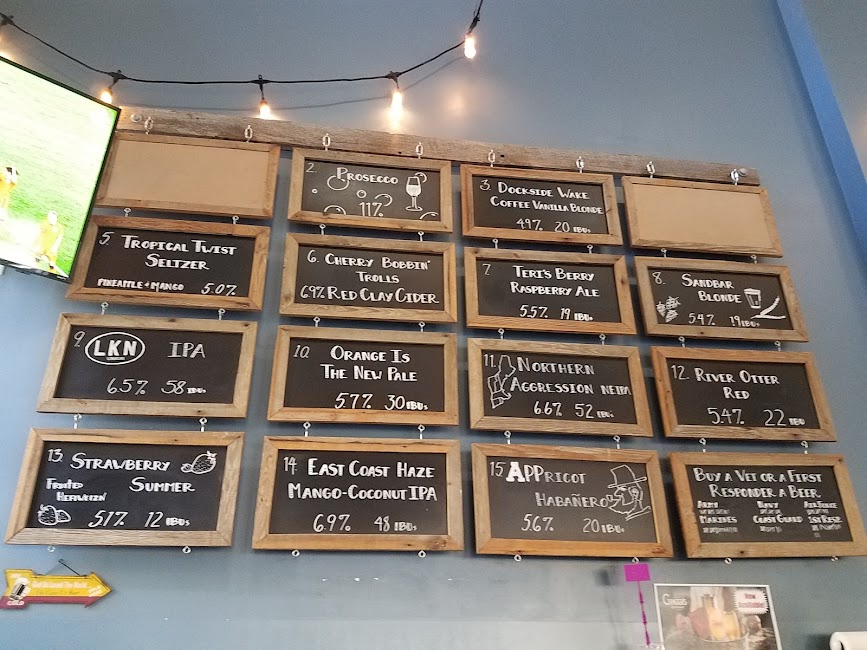 2. PROSECCO
11%
3. DOCKSIDE WAKE
COFFEE VANILLA BLONDE
4.9% 20 IBUs
5. TROPICAL TWIST
SELTZER
PINEAPPLE + MANGO 5.0%
6. CHERRY BOBBIN'
TROLLS
6.9% RED CLAY CIDER
7. TERI'S BERRY
RASPBERRY ALE
5.5% 19 IBUs
8. SANDBAR
BLONDE
5.4% 19 IBUs
9. LKN IPA
6.5% 58 IBUs
10. ORANGE IS
THE NEW PALE
5.7% 30 IBUs
11. NORTHERN
AGGRESSION NEIPA
6.6% 52 IBUs
12. RIVER OTTER
RED
5.4% 22 IBU
13. STRAWBERRY
FRUITED SUMMER
HEFEWEIZN
5.1% 12 IBUs
14. EAST COAST HAZE
MANGO-COCONUT IPA
6.9% 48 IBUs
15. APPRICOT
HABAÑERO
5.6% 20 IBUs
BUY A VET OR A FIRST
RESPONDER A BEER
ARMY NAVY AIR FORCE
MARINES COAST GUARD 1ST RESP.
COLD
GINGERS
NOW